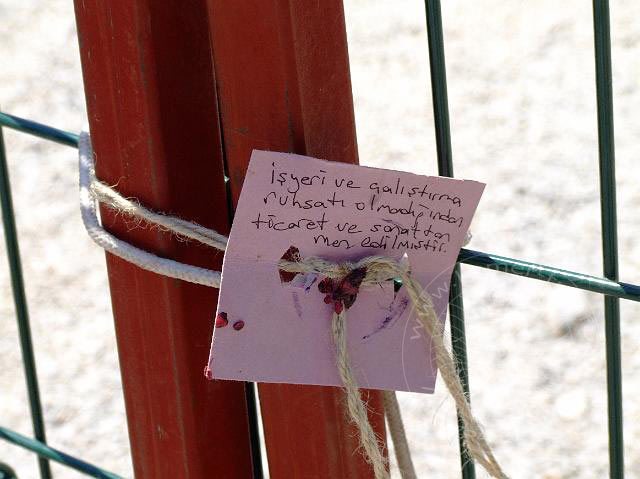 işyeri ve çalıştırma
ruhsatı olmadığından
ticaret ve sanattan
men edilmiştir.